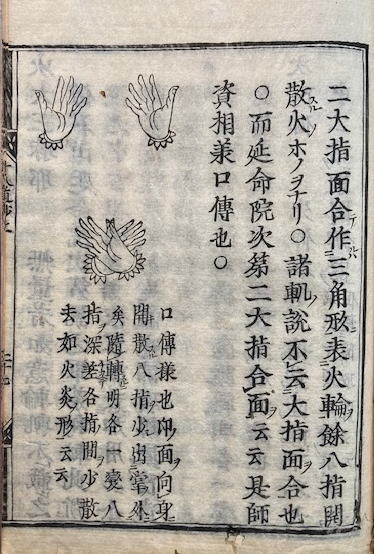 二大指面合作三角形表火輪餘八指開
散火ホノヲナリ○諸軌說不云大指面合也
○而延命院次第二大指合面云云是師
資相承口傳也○
口傳樣也印面向身
開散八指少出掌外
矣隨轉明各一變八
指深差各指間少散
去如火炎形云云